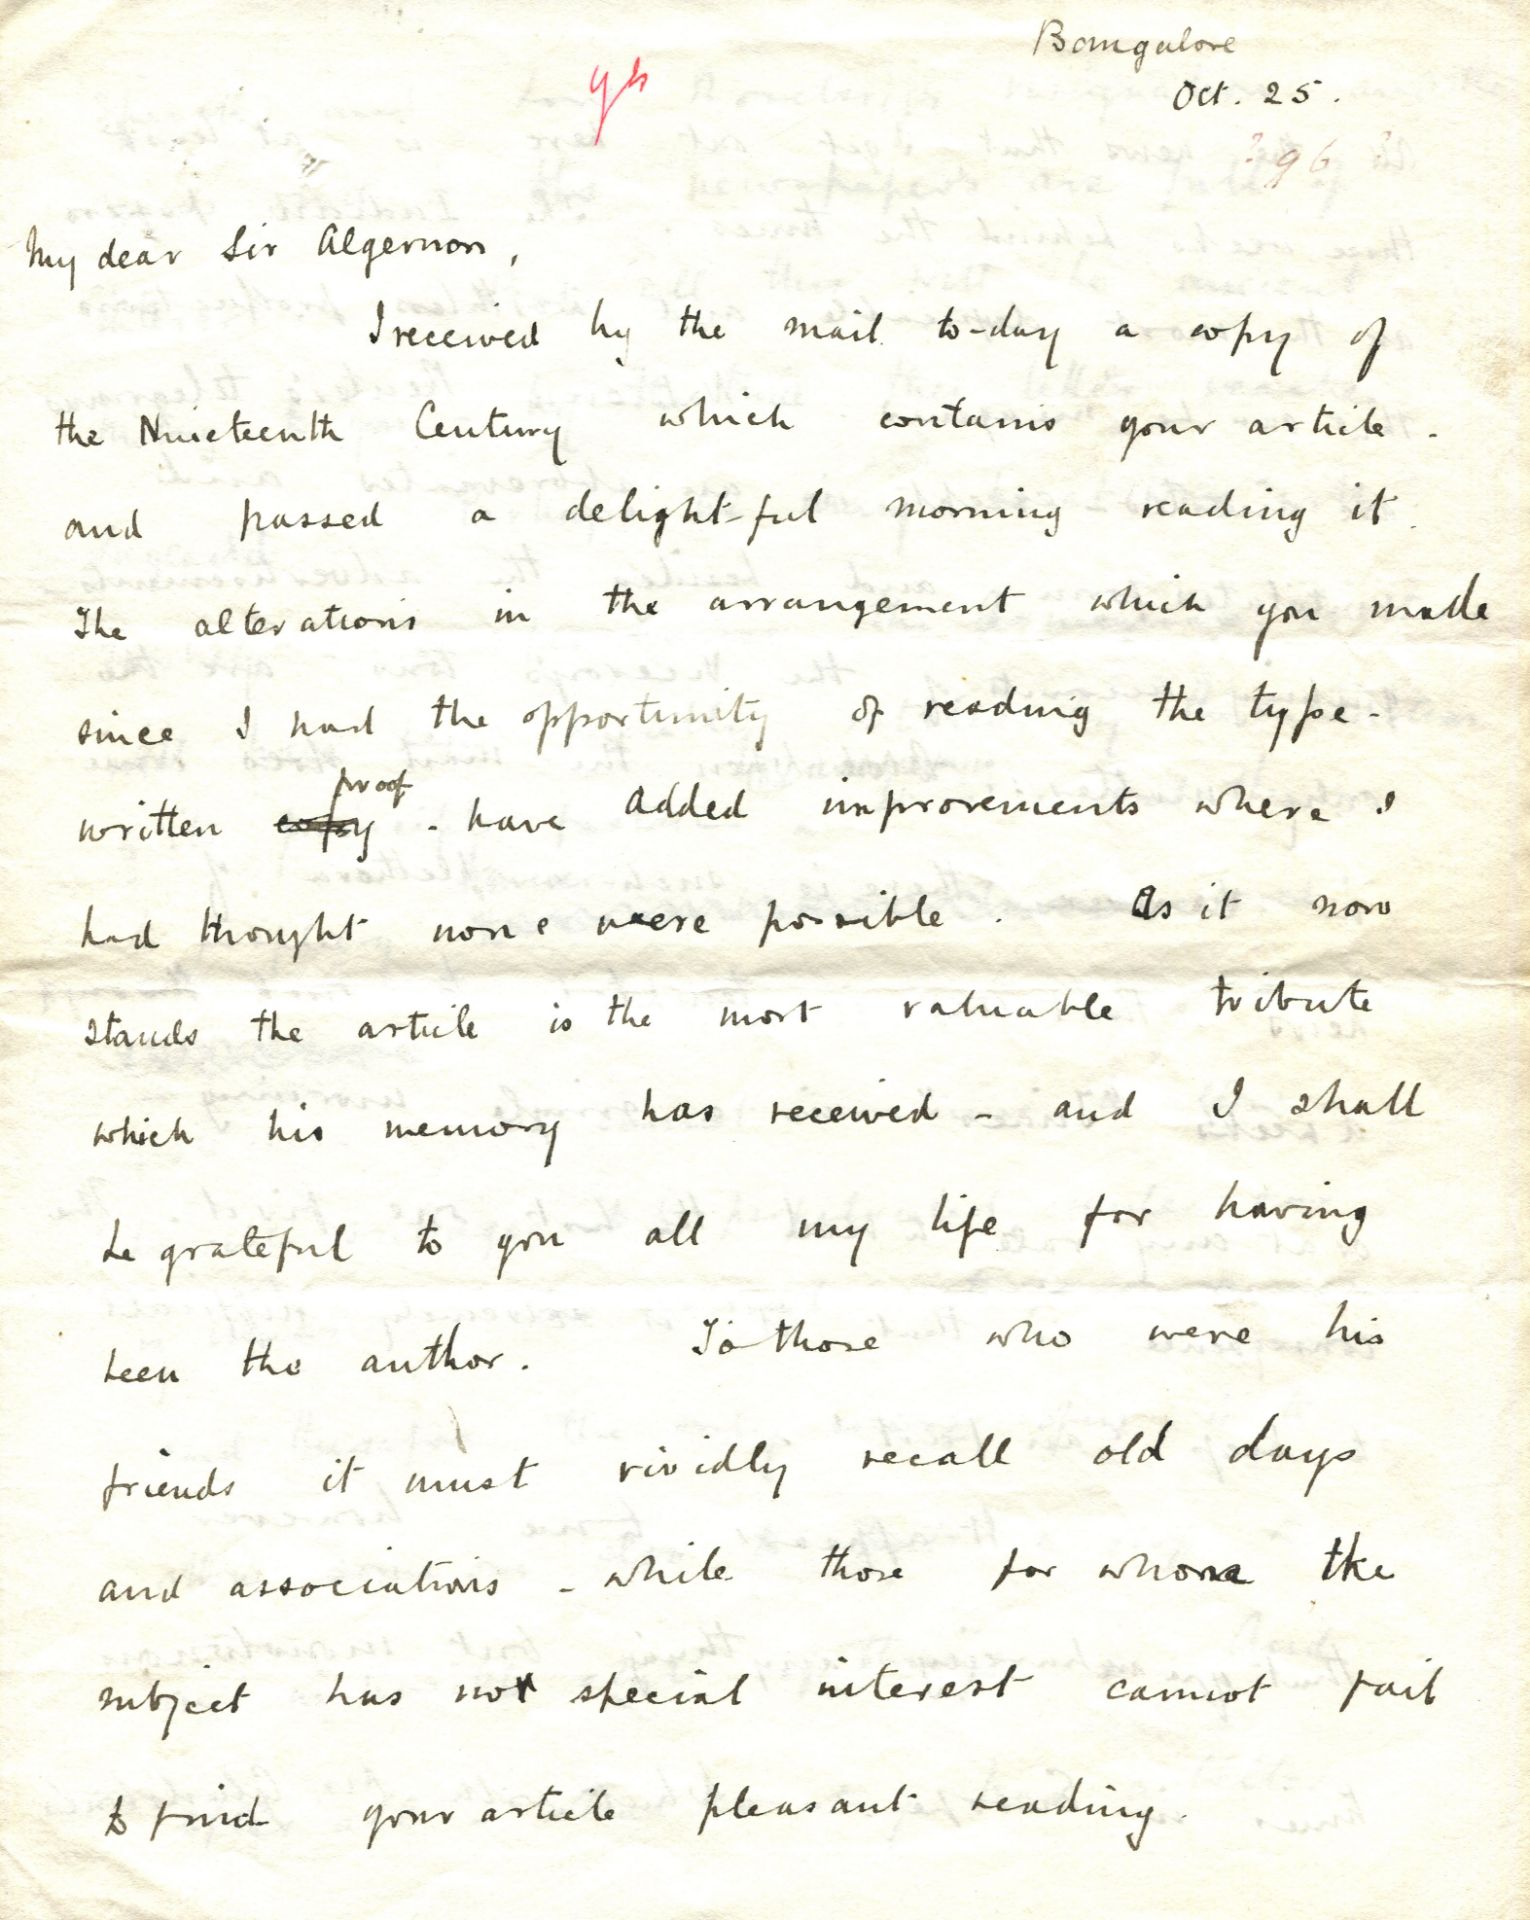 Bangalore
Oct. 25.
? 96 ?
My dear Sir Algernon,
I received by the mail to-day a copy of
the Nineteenth Century which contains your article -
and passed a delight-ful morning reading it.
The alterations in the arrangement which you made
since I had the opportunity of reading the type-
proof
written copy - have added improvements where I
had thought none were possible. As it now
stands the article is the most valuable tribute
which his memory has received - and I shall
be grateful to you all my life for having
been the author. To those who were his
friends it must vividly recall old days
and associations - while those for whom the
subject has not special interest cannot fail
to find your article pleasant reading.